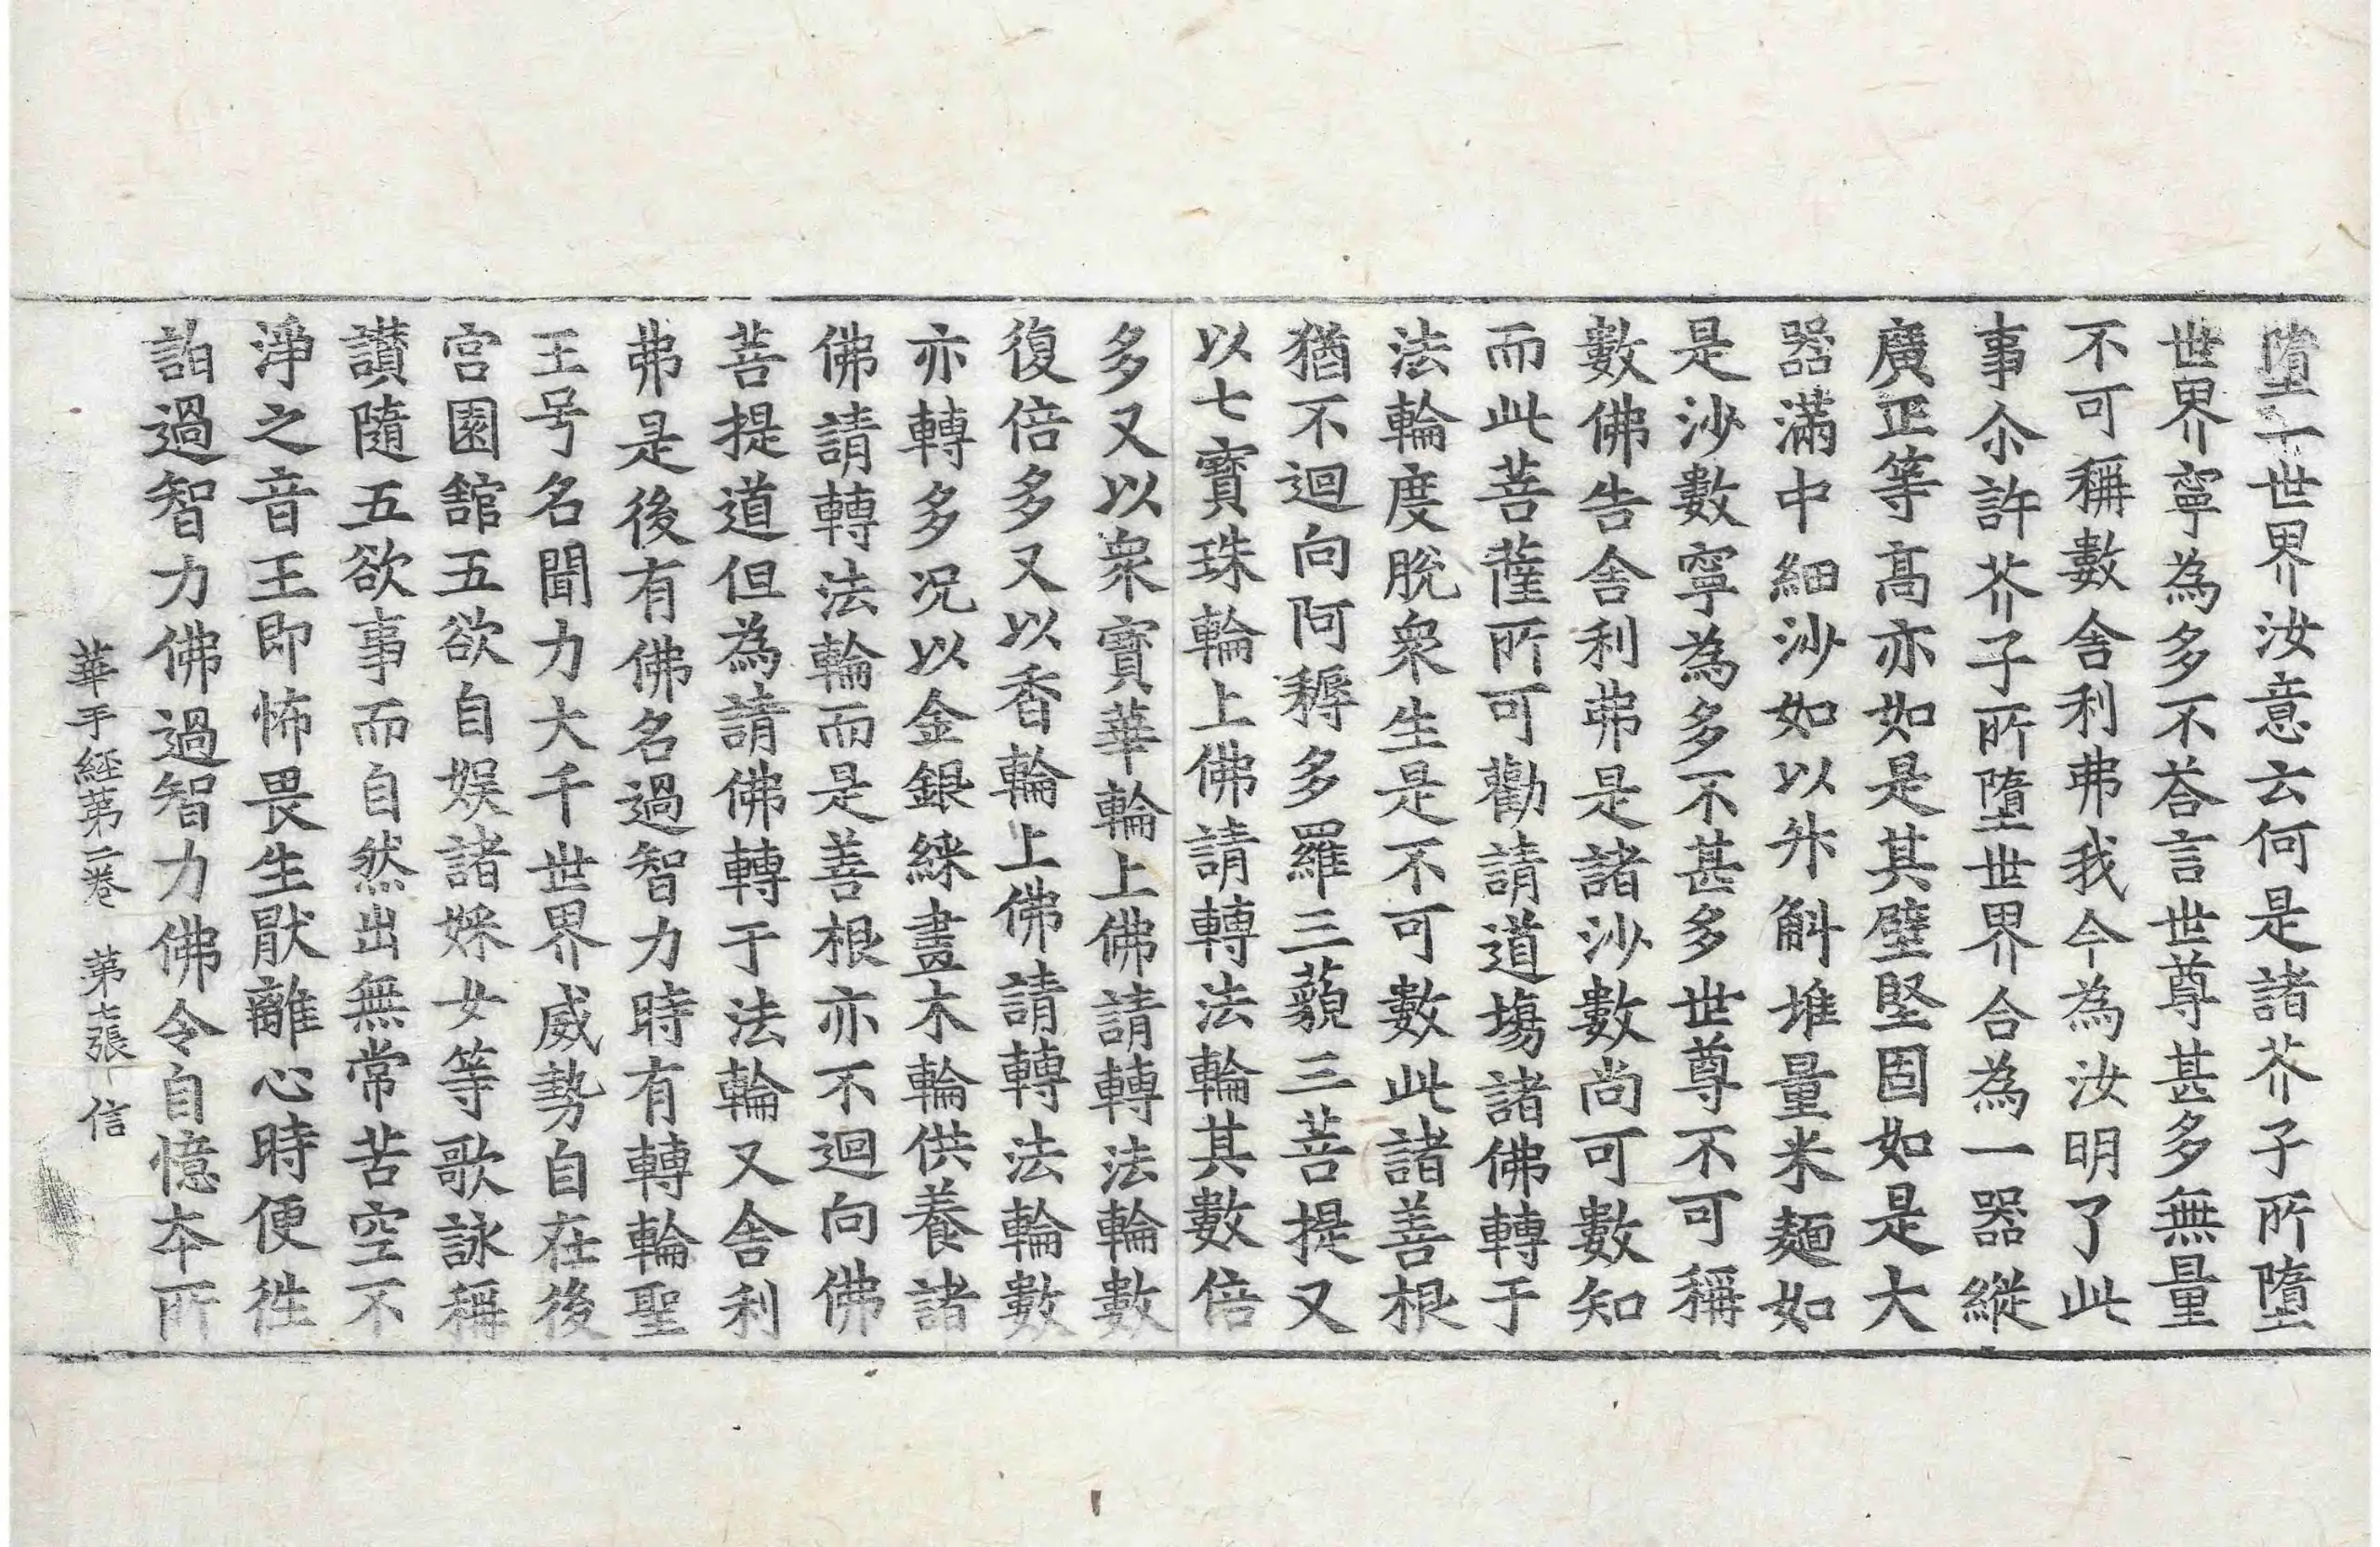 墮一世界汝意云何是諸芥子所墮
世界寧為多不荅言世尊甚多無量
不可稱數舍利弗我今為汝明了此
事尒許芥子所墮世界合為一器縱
廣正等高亦如是其壁堅固如是大
器滿中細沙如以升斛堆量米麺如
是沙數寧為多不甚多世尊不可稱
數佛告舍利弗是諸沙數尚可數知
而此菩薩所可勸請道場諸佛轉于
法輪度脫衆生是不可數此諸善根
猶不迴向阿耨多羅三藐三菩提又
以七寶珠輪上佛請轉法輪其數倍
多又以衆寶華輪上佛請轉法輪數
復倍多又以香輪上佛請轉法輪數
亦轉多况以金銀綵畫木輪供養諸
佛請轉法輪而是善根亦不迴向佛
菩提道但為請佛轉于法輪又舍利
弗是後有佛名過智力時有轉輪聖
王号名聞力大千世界威勢自在後
宫園舘五欲自娱諸婇女等歌詠稱
讃隨五欲事而自然出無常苦空不
淨之音王即怖畏生厭離心時便徃
詣過智力佛過智力佛令自憶本所
華手經第二卷　第七張　信